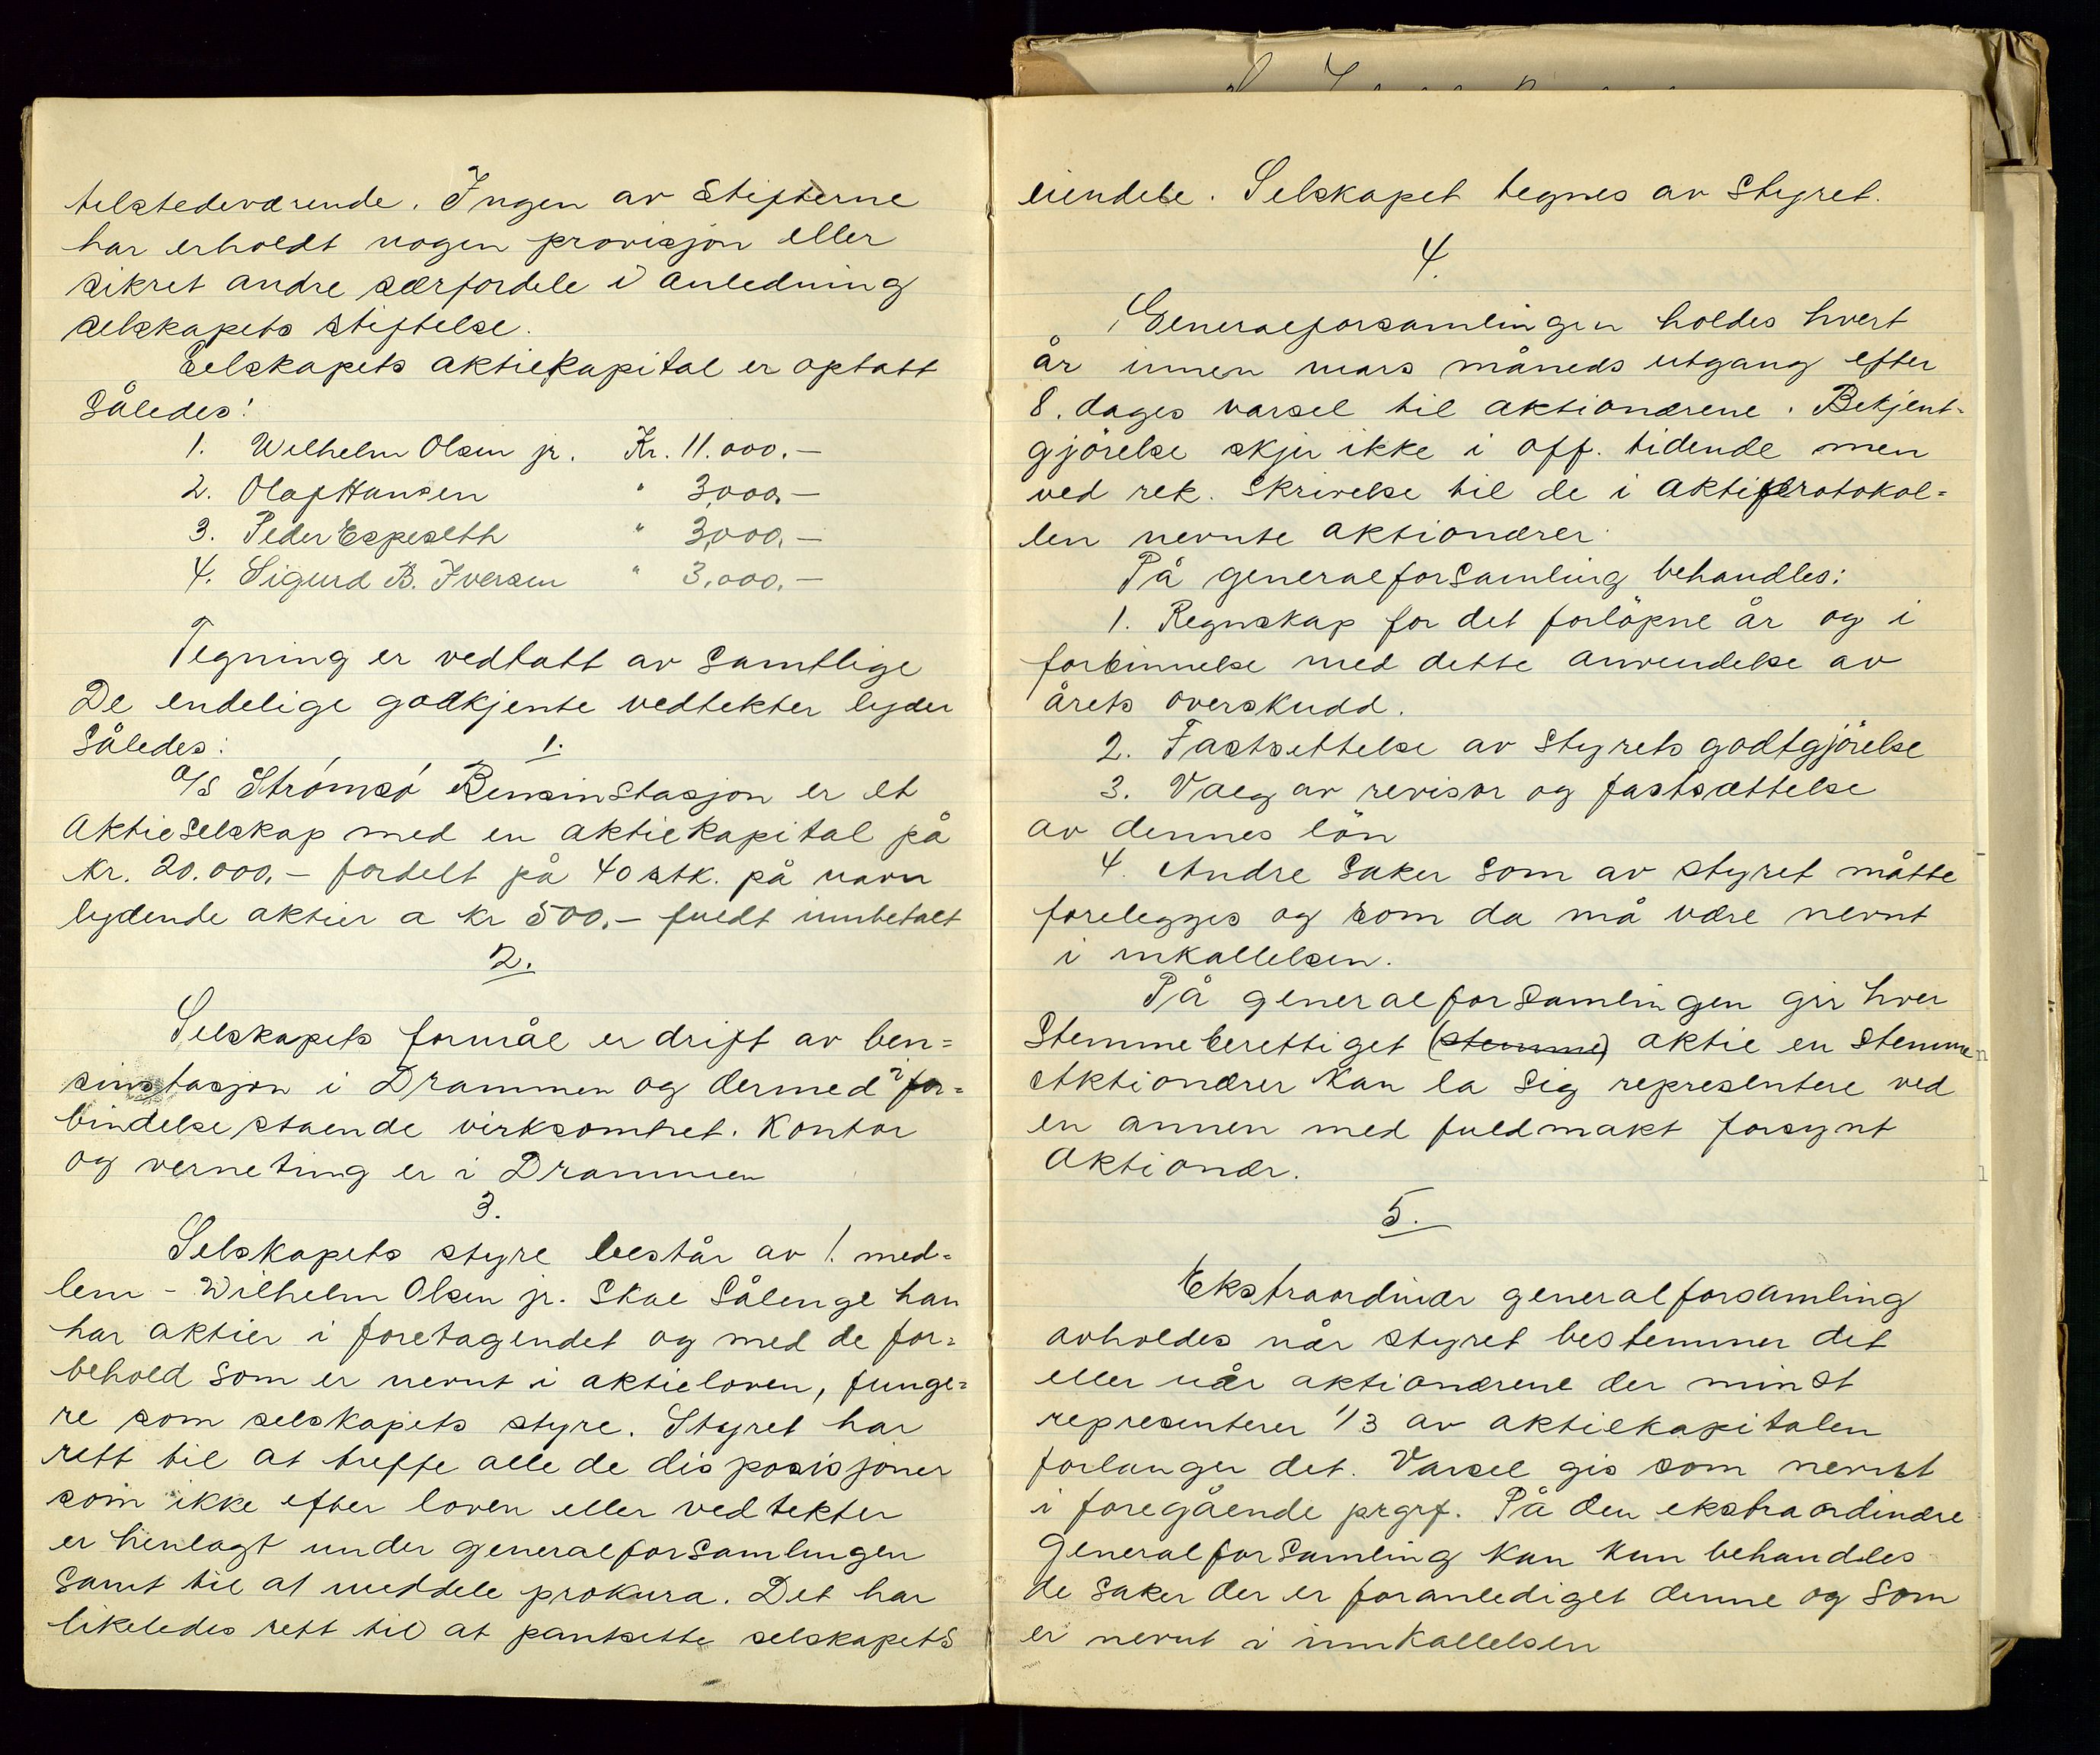 telstedeværende. Ingen av Stifterne
har erholdt nogen provisjon eller
sikret andre særfordele i anledning
selskapets stiftelse.
Selskapets aktiekapital er optatt
Således:
1. Wilhelm Olsen jr. Kr. 11.000.-
2. Olaf Hansen " 3,000,-
3. Peder Espeseth " 3,000.-
4. Sigurd B. Iversen " 3.000.-
Tegning er vedtatt av Samtlige
De endelige godkjente vedtekter lyder
Således:
1.
A/S Strømsø Bensinstasjon er et
Aktieselskap med en aktiekapital på
kr. 20.000.- fordelt på 40 stk. på navn
lydende aktier a kr 500.- fuldt innbetalt
2.
Selskapets formål er drift av ben=
sinstasjon i Drammen og dermed i for=
bindelse staende virksomhet. Kontor
og verneting er i Drammen
3.
Selskapets styre består av 1. med=
lem - Wilhelm Olsen jr. Skal Sålenge han
har aktier i foretagendet og med de for=
behold som er nevnt i aktieloven, funge=
re som selskapets styre. Styret har
rett til at treffe alle de disposisjoner
som ikke efter loven eller vedtekter
er henlagt under generalforsamlingen
Samt til at meddele prokura. Det har
likeledes rett til at pantsette selskapets
eiendele. Selskapet tegnes av Styret.
4.
Generalforsamlingen holdes hvert
år innen mars måneds utgang efter
8. dages varsel til aktionærene. Bekjent-
gjörelse skjer ikke i off. tidende men
ved rek. Skrivelse til de i aktieprotokol=
len nevnte aktionærer.
På generalforsamling behandles:
1. Regnskap for det forlöpne år og i
forbinnelse med dette anvendelse av
årets overskudd.
2. Fastsettelse av Styrets godtgjörelse
3. Valg av revisor og fastsættelse
av dennes lön
4. Andre Saker Som av styret måtte
forelegges og som da må være nevnt
i inkallelsen.
På generalforsamlingen gir hver
Stemmeberettiget (stemme) aktie en stemme
Aktionærer kan la Sig representere ved
en annen med fuldmakt forsynt
Aktionær.
5.
Ekstraordinær generalforsamling
avholdes når styret bestemmer det
eller når aktionærene der minst
representerer 1/3 av aktiekapitalen
forlanger det. Varsel gis som nevnt
i foregående prgrf. På den ekstraordinære
Generalforsamling kan kun behandles
de Saker der er foranlediget denne og Som
er nevnt i innkallelsen